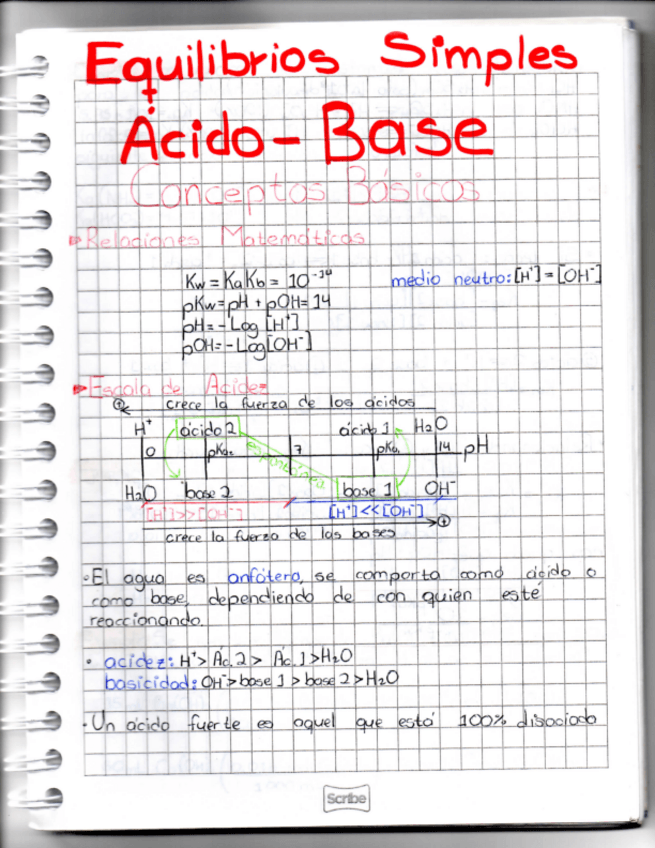 Equilibrios Simples
Ácido-Base
Conceptos Básicos
Relaciones Matemáticas
Kw = KaKb = 10⁻¹⁴
medio neutro: [H⁺] = [OH⁻]
pKw = pH + pOH = 14
pH = -Log [H⁺]
pOH = -Log[OH⁻]
Escala de Acidez
crece la fuerza de los ácidos
H⁺ ácido 2 ácido 1 H₂O
espontánea
0 pKa₂ 7 pKa₁ 14 pH
H₂O base 2 base 1 OH⁻
[H⁺]>>[OH⁻] [H⁺]<<[OH⁻]
crece la fuerza de las bases
El agua es anfótero, se comporta como ácido o
como base, dependiendo de con quien esté
reaccionando.
• acidez: H⁺> Ác. 2 > Ác. 1 >H₂O
basicidad: OH⁻>base 1 > base 2 > H₂O
Un ácido fuerte es aquel que está 100% disociado
Scribe